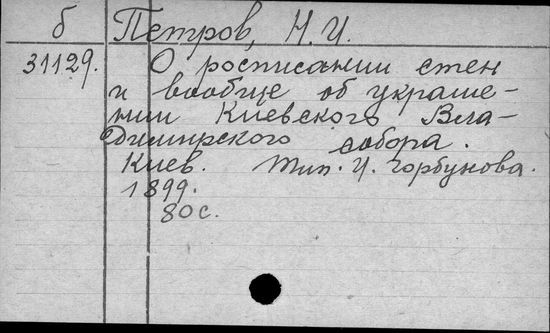 б Петров, Н. И.
31129. О росписании стен
и вообще об украше-
нии Киевского Вла-
димирского собора.
Киев. Тип. И. Горбунова.
1899.
80 с.